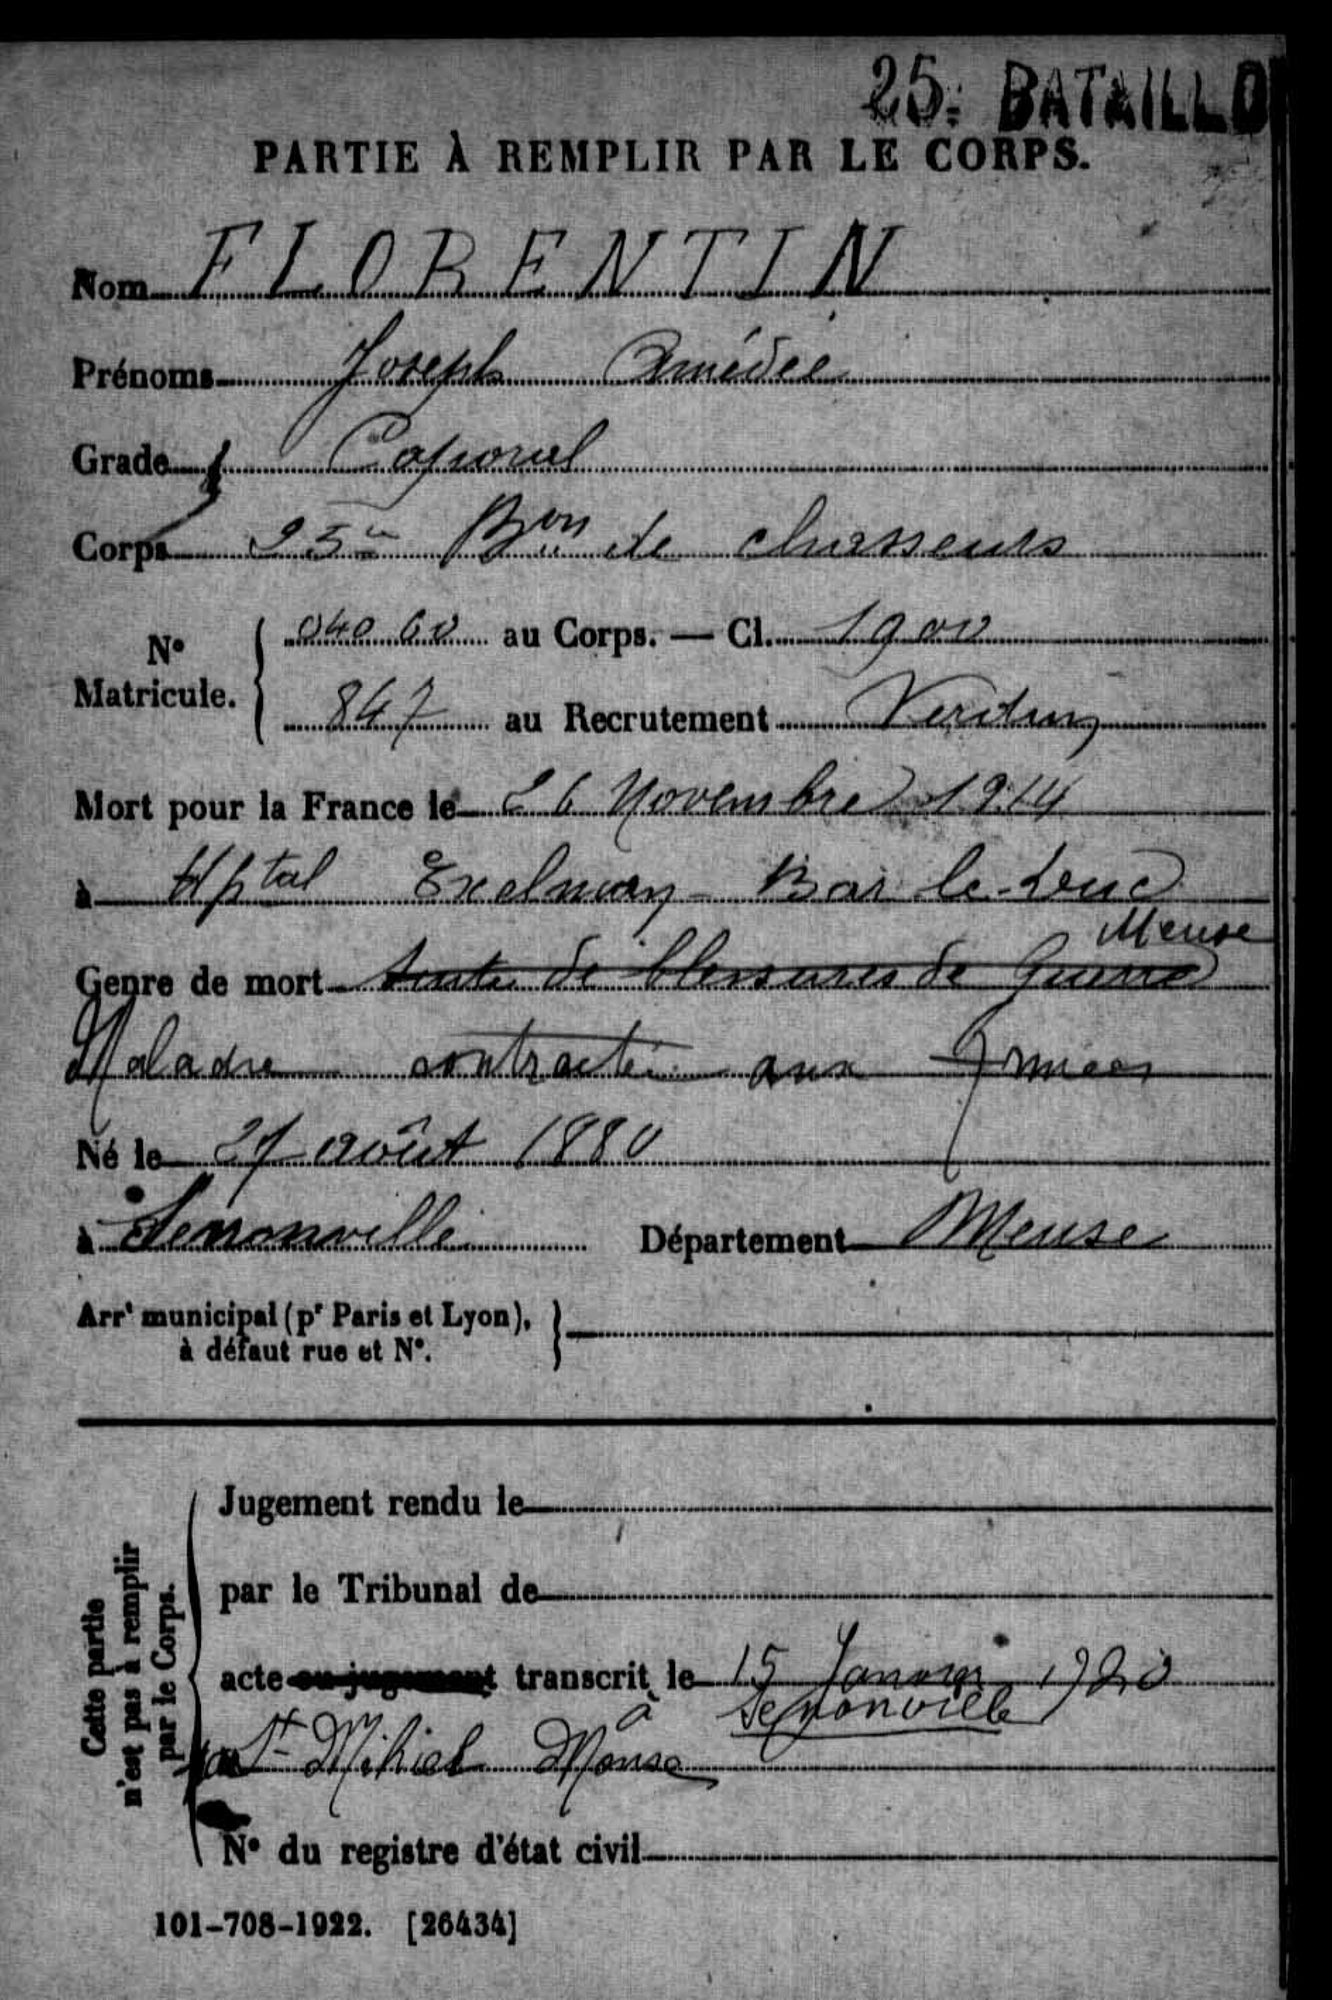 25e BATAILLO
PARTIE À REMPLIR PAR LE CORPS.
Nom FLORENTIN
Prénoms Joseph Amédée
Grade Caporal
Corps 25e Bon de chasseurs
N° Matricule. 04060 au Corps. — Cl. 1900
847 au Recrutement Verdun
Mort pour la France le 26 Novembre 1914
à Hptal Exelmans Bar le-Duc
Meuse
Genre de mort suites de blessures de Guerre
Maladie contractée aux Armées
Né le 27 août 1880
à Senonville Département Meuse
Arrt municipal (pr Paris et Lyon),
à défaut rue et N°.
Jugement rendu le
par le Tribunal de
Cette partie
n'est pas à remplir
par le Corps.
acte ou jugement transcrit le 15 Janvier 1920
à Senonville
St Mihiel Meuse
N° du registre d'état civil
101-708-1922. [26434]